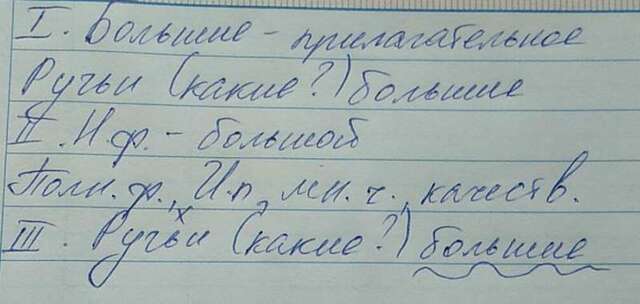 I. Большие - прилагательное
Ручьи (какие?) большие
II. Н.ф. - большой
Полн. ф., И.п, мн. ч., качеств.
III. Ручьи (какие?) большие
х